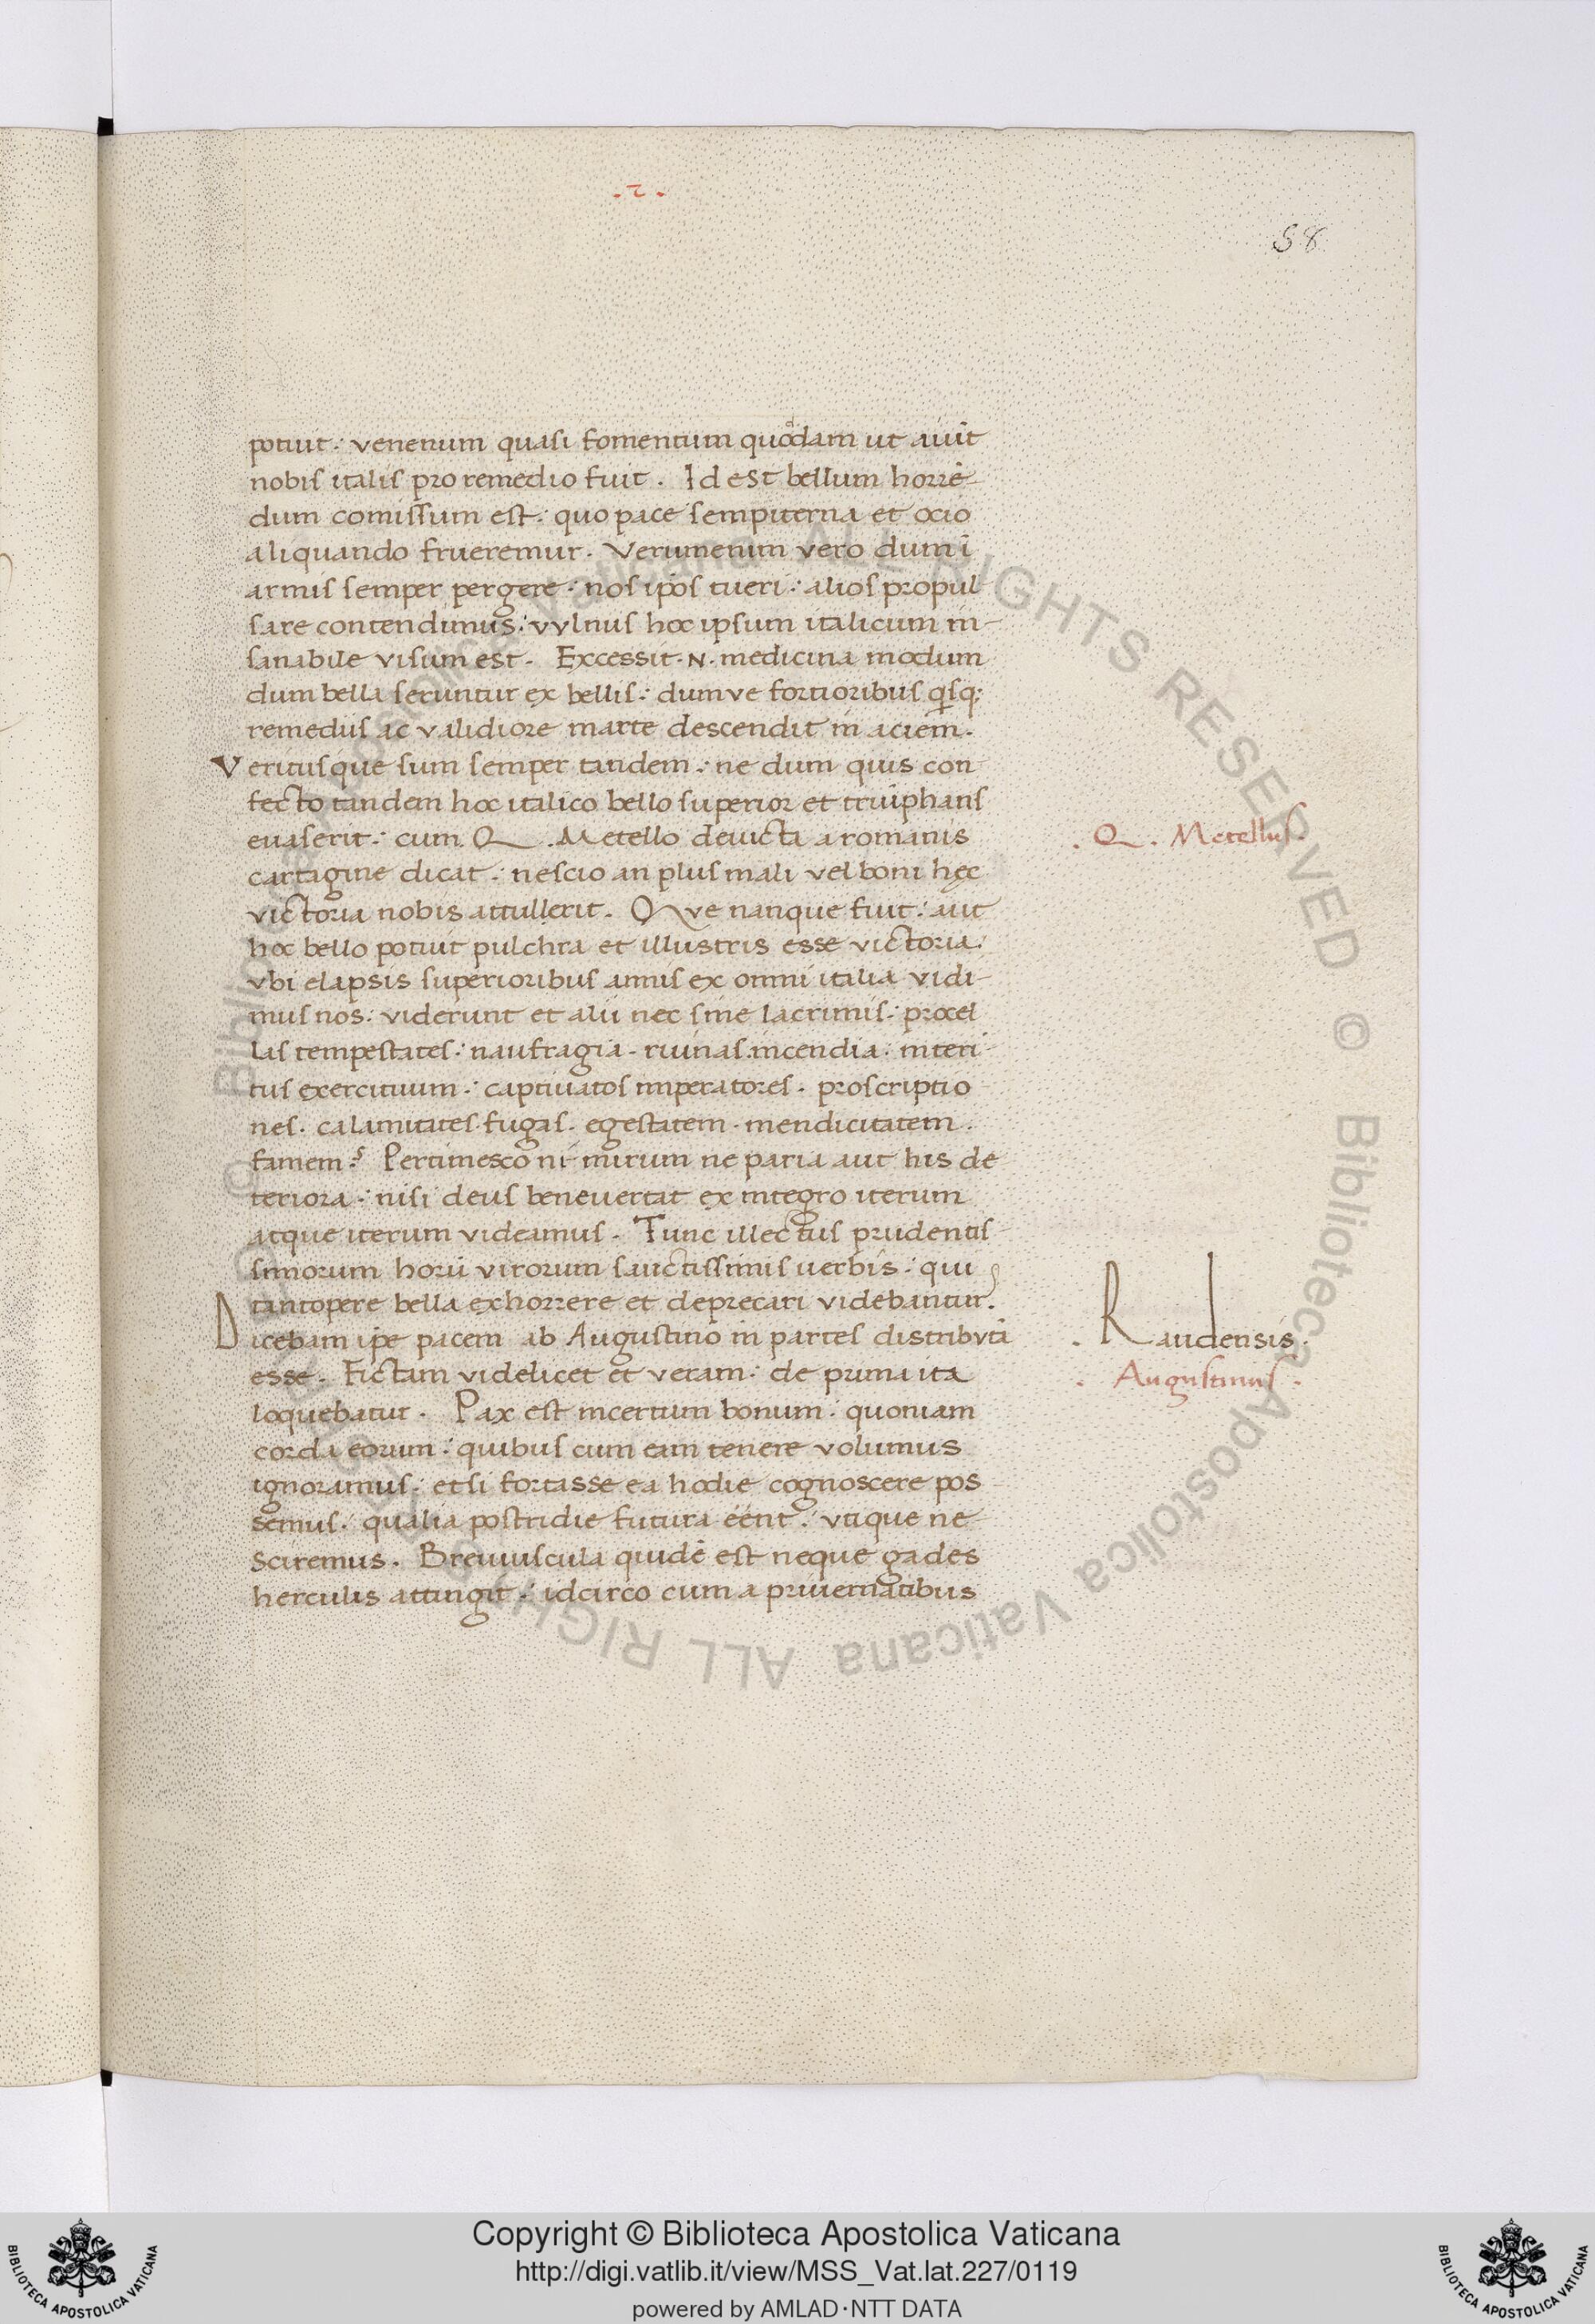 . 2 .
58
potuit. venenum quasi fomentum quoddam ut aiūt
nobis italis pro remedio fuit. Id est bellum horrē-
dum comissum est. quo pace sempiterna et ocio
aliquando frueremur. Verumenim vero dum ī
armis semper pergere. nos ip̄os tueri. alios propul
sare contendimus. vvlnus hoc ipsum italicum in-
sanabile visum est. Excessit .N. medicina modum
dum bella seruntur ex bellis. dumve fortioribus q̇sq;
remediis ac validiore marte descendit in aciem.
Veritusque sum semper tandem. ne dum quis con-
fecto tandem hoc italico bello superior et triūphans
evaserit. cum Q. Metello devicta a romanis
. Q. Metellus.
cartagine dicat. nescio an plus mali vel boni hęc
victoria nobis attullerit. Qve nanque fuit. aut
hoc bello potuit pulchra et illustris esse victoria.
vbi elapsis superioribus annis ex omni italia vidi-
mus nos. viderunt et alii nec sine lacrimis. procel
las tempestates. naufragia. ruinas. incendia. interi-
tus exercituum. captivatos imperatores. proscriptio
nes. calamitates. fugas. egestatem. mendicitatem.
famem? Pertimesco ni mirum ne paria aut his de
teriora. nisi deus benevertat ex integro iterum
atque iterum videamus. Tunc illectus prudentis-
simorum horū virorum sanctissimis uerbis. qui
tantopere bella exhorrere et deprecari videbantur.
Dicebam ip̄e pacem ab Augustino in partes distribvtā
. Raudensis.
esse. Fictam videlicet et veram. de prima ita
. Augustinus.
loquebatur. Pax est incertum bonum. quoniam
corda eorum. quibus cum eam tenere volumus
ignoramus. et si fortasse ea hodie cognoscere pos
semus. qualia postridie futura eēnt. vtique ne
sciremus. Breviuscula quidē est neque gades
herculis attingit. idcirco cum a privernatibus
Copyright © Biblioteca Apostolica Vaticana
http://digi.vatlib.it/view/MSS_Vat.lat.227/0119
powered by AMLAD·NTT DATA
BIBLIOTECA APOSTOLICA VATICANA
BIBLIOTECA APOSTOLICA VATICANA
© Biblioteca Apostolica Vaticana ALL RIGHTS RESERVED © Biblioteca Apostolica Vaticana ALL RIGHTS